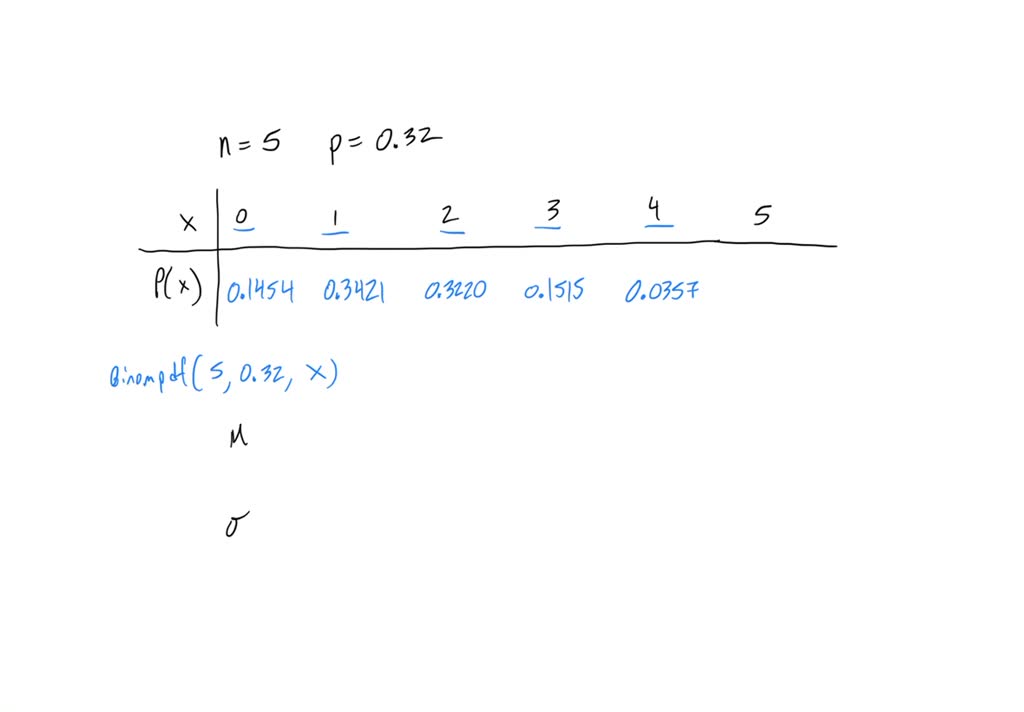 n = 5 p = 0.32
x 0 1 2 3 4 5
P(x) 0.1454 0.3421 0.3220 0.1515 0.0357
Binompdf(5, 0.32, x)
μ
σ